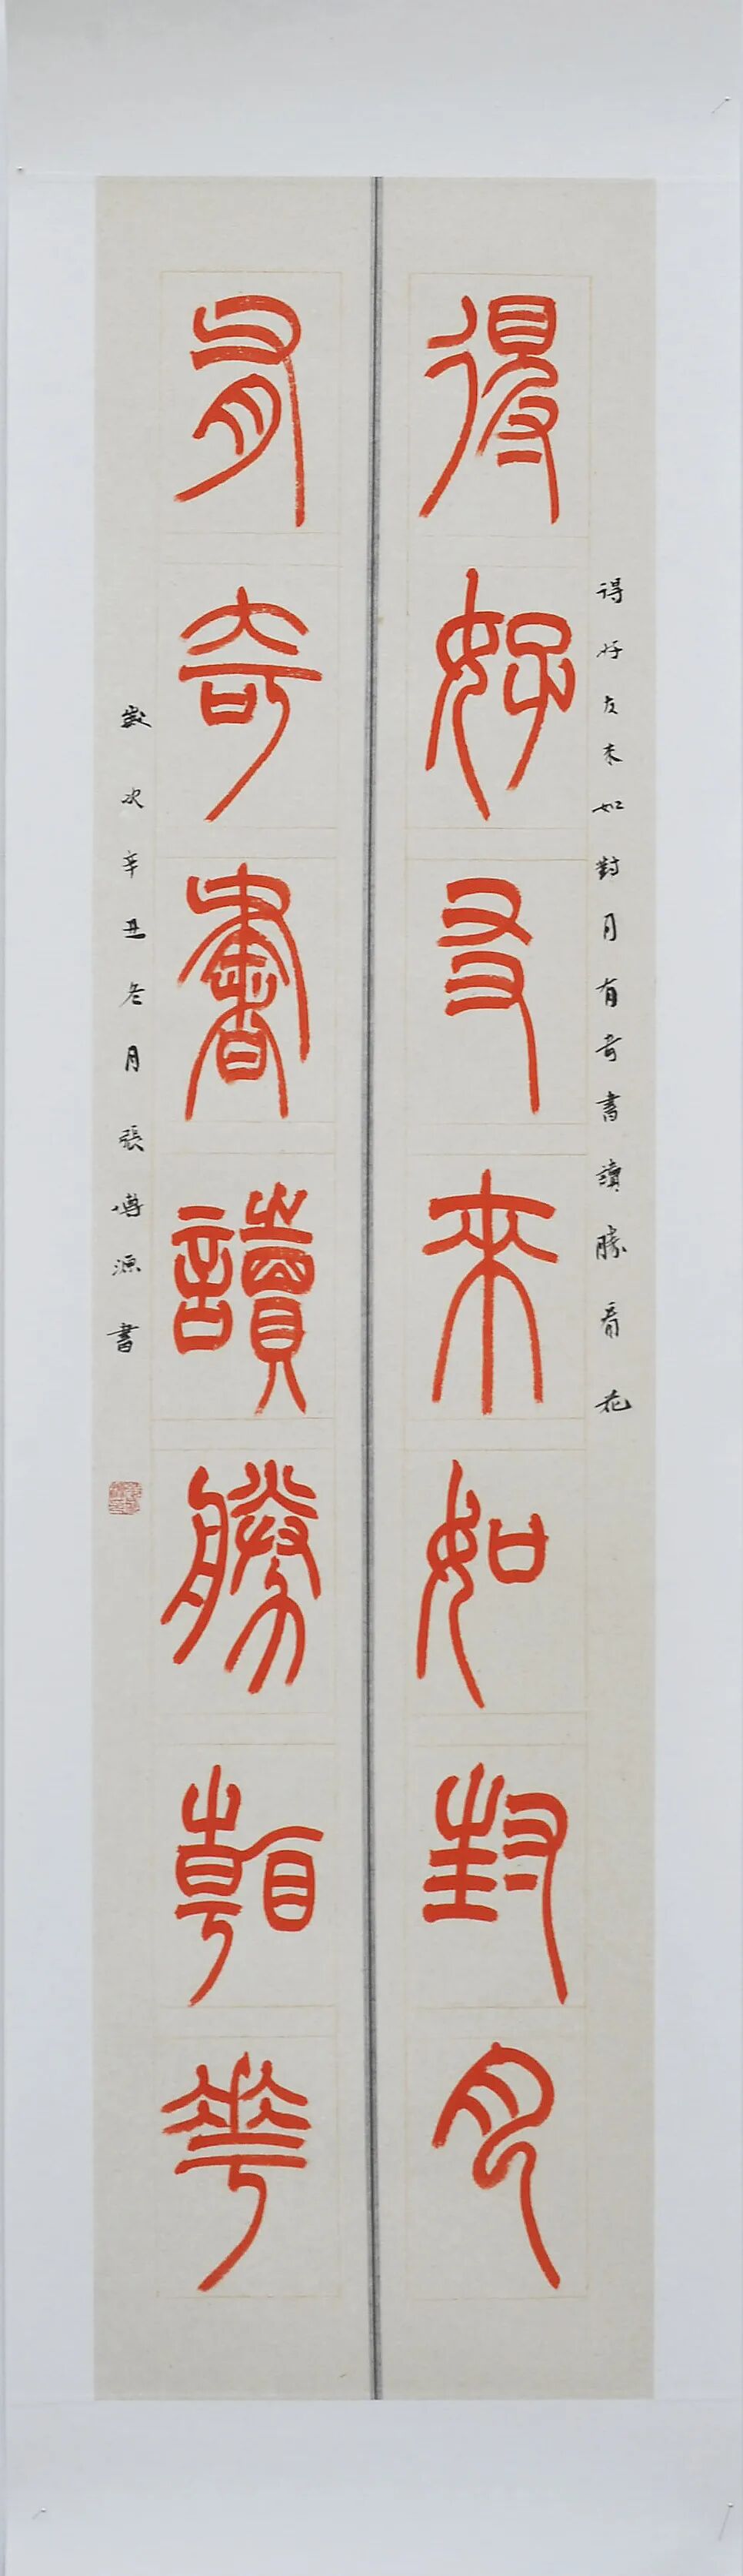 得好友來如對月有奇書讀勝看花
得好友來如對月
有奇書讀勝看華
歲次辛丑冬月張博源書